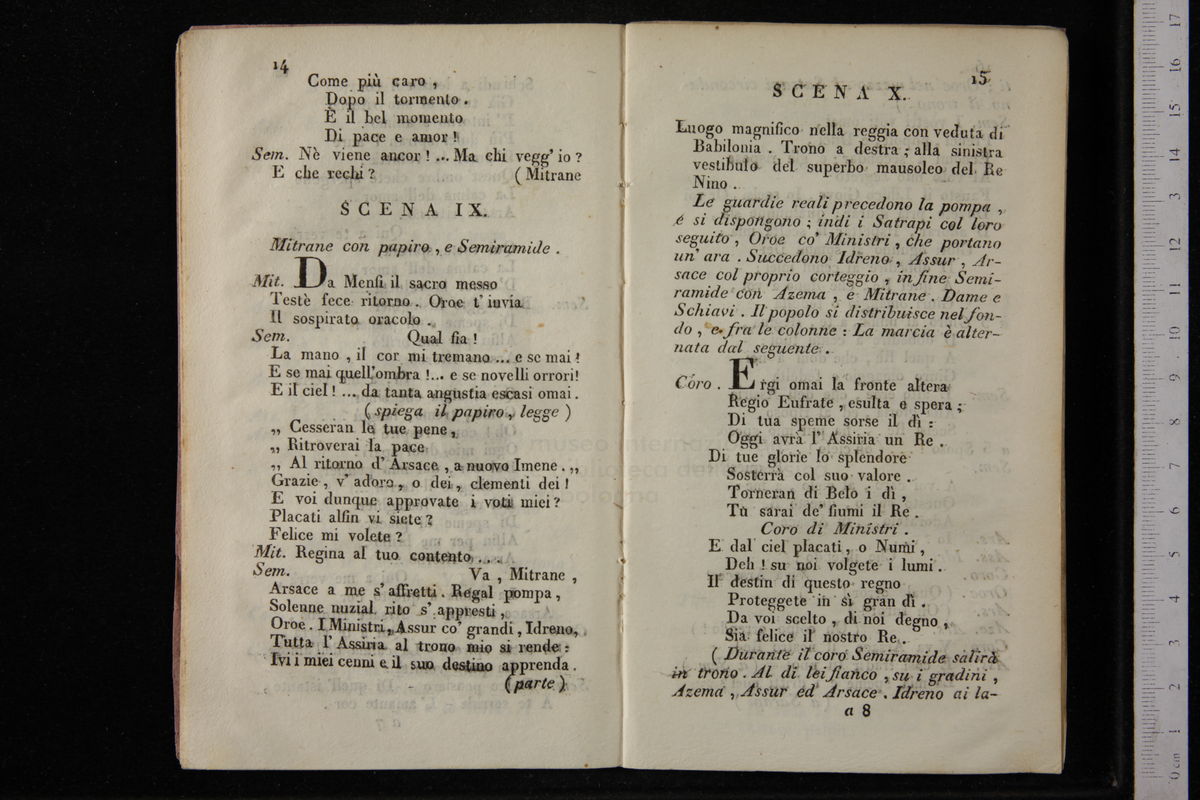 14
Come più caro ,
Dopo il tormento .
È il bel momento
Di pace e amor !
Sem. Nè viene ancor ! ... Ma chi vegg' io ?
E che rechi ? ( Mitrane
SCENA IX.
Mitrane con papiro , e Semiramide .
Mit. Da Menfi il sacro messo
Testè fece ritorno . Oroe t' invia
Il sospirato oracolo .
Sem. Qual fia !
La mano , il cor mi tremano ... e se mai !
E se mai quell'ombra !... e se novelli orrori!
E il ciel ! ... da tanta angustia escasi omai .
( spiega il papiro , legge )
„ Cesseran le tue pene ,
„ Ritroverai la pace
„ Al ritorno d' Arsace , a nuovo Imene . „
Grazie , v' adoro , o dei , clementi dei !
E voi dunque approvate i voti miei ?
Placati alfin vi siete ?
Felice mi volete ?
Mit. Regina al tuo contento ....
Sem. Va , Mitrane ,
Arsace a me s' affretti . Regal pompa ,
Solenne nuzial rito s' appresti ,
Oroe . I Ministri , Assur co' grandi , Idreno,
Tutta l' Assiria al trono mio si rende :
Ivi i miei cenni e il suo destino apprenda .
(parte)
15
SCENA X.
Luogo magnifico nella reggia con veduta di
Babilonia . Trono a destra ; alla sinistra
vestibulo del superbo mausoleo del Re
Nino .
Le guardie reali precedono la pompa ,
e si dispongono ; indi i Satrapi col loro
seguito , Oroe co' Ministri , che portano
un' ara . Succedono Idreno , Assur , Ar-
sace col proprio corteggio , in fine Semi-
ramide con Azema , e Mitrane . Dame e
Schiavi . Il popolo si distribuisce nel fon-
do , e fra le colonne : La marcia è alter-
nata dal seguente .
Coro . Ergi omai la fronte altera
Regio Eufrate , esulta e spera ;
Di tua speme sorse il dì :
Oggi avrà l' Assiria un Re .
Di tue glorie lo splendore
Sosterrà col suo valore .
Torneran di Belo i dì ,
Tu sarai de' fiumi il Re .
Coro di Ministri .
E dal ciel placati , o Numi ,
Deh ! su noi volgete i lumi .
Il destin di questo regno
Proteggete in sì gran dì .
Da voi scelto , di noi degno ,
Sia felice il nostro Re .
( Durante il coro Semiramide salirà
in trono . Al di lei fianco , su i gradini ,
Azema , Assur ed Arsace . Idreno ai la-
a 8
museo internaz
biblioteca del
bologna
0 cm 1 2 3 4 5 6 7 8 9 10 11 12 13 14 15 16 17